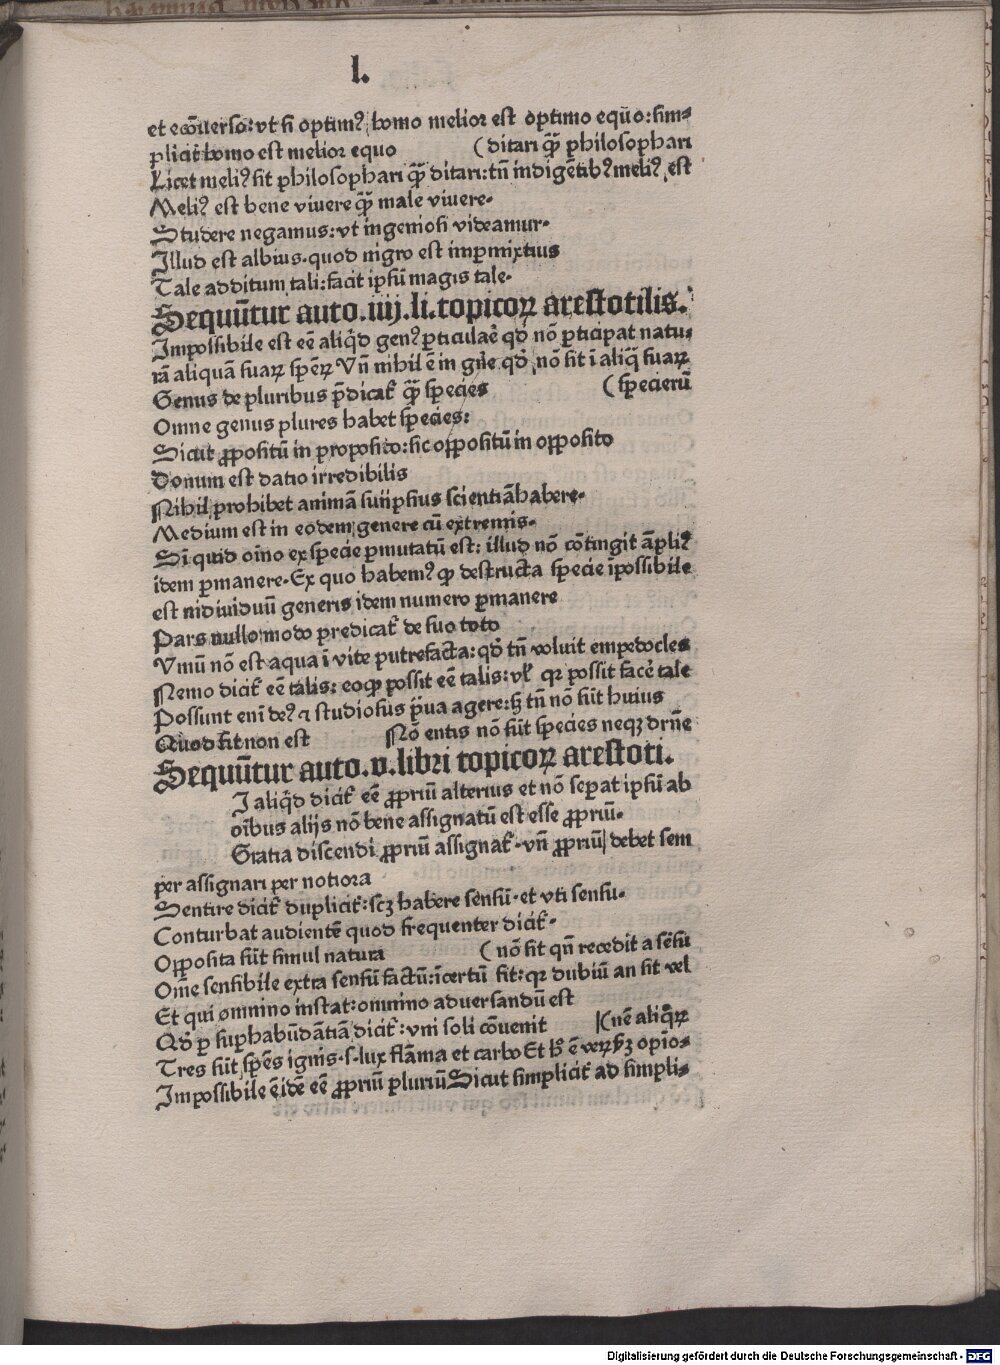 l.
et ecōuerso: vt si optimꝰ homo melior est optimo equo: sim⸗
pliciť homo est melior equo (ditari qᷓꝫ philosophari
Licet meliꝰ sit philosophari qᷓꝫ ditari: tñ indigētibꝰ meliꝰ est
Meliꝰ est bene viuere qᷓꝫ male viuere.
Studere negamus: vt ingeniosi videamur.
Illud est albius. quod nigro est impmixtius
Tale additum tali: facit ipsū magis tale.
Sequūtur auto. iiij. li. topicoꝝ arestotilis.
Impossibile est eē aliq̄d genꝰ ꝑticulaē qd̓ nō ꝑticipat natu⸗
rā aliquā suaꝝ spēꝝ Vn̄ nihil ē in gn̄e qd̓ nō sit ī aliq̄ suaꝝ
Genus de pluribus p̄dicat᷑ qᷓꝫ species (specierū
Omne genus plures habet species:
Sicut ꝓpositū in proposito: sic oppositū in opposito
Donum est datio irredibilis
Nihil prohibet animā suiipsius scientiā habere.
Medium est in eodem genere cū extremis.
Si quid oīno ex specie ꝑmutatū est: illud nō cōtingit āpliꝰ
idem ꝑmanere. Ex quo habemꝰ ꝙ destructa specie īpossibile
est nidiuiduū generis idem numero ꝑmanere
Pars nullo modo predicat᷑ de suo toto
Vinū nō est aqua ī vite putrefacta: qd̓ tn̄ voluit empedocles
Nemo dicit᷑ eē talis: eoꝙ possit eē talis: vl̓ qꝛ possit facē tale
Possunt eni deꝰ ⁊ studiosus p̄ua agere: hͥ tn̄ nō sūt huius
Quod sit non est Nō entis nō sūt species neqꝫ drn̄e
Sequūtur auto. v. libri topicoꝝ arestoti.
I aliq̄d dicit᷑ eē ꝓpriū alterius et nō seꝑat ipsū ab
oībus alijs nō bene assignatū est esse ꝓpriū.
Gratia discendi ꝓpriū assignat᷑. vn̄ ꝓpriū debet sem
per assignari per notiora
Sentire dicit᷑ duplicit᷑: scꝫ habere sensū. et vti sensu.
Conturbat audientē quod frequenter dicit᷑.
Opposita sūt simul natura (nō sit qn̄ recedit a sēsu
Om̄e sensibile extra sensū factū: īcertū sit: qꝛ dubiū an sit vel
Et qui omnino instat: omnino aduersandū est
Qd̓ ꝑ suꝑhabūdātiā dicit᷑: vni soli cōuenit (nē aliq̄ꝝ
Tres sūt spēs ignis. s. lux flāma et carbo Et hͦ ē veꝝ ẜꝫ opio⸗
Impossibile ē idē eē ꝓpriū pluriū Sicut simplicit᷑ ad simpli⸗
Digitalisierung gefördert durch die Deutsche Forschungsgemeinschaft - DFG